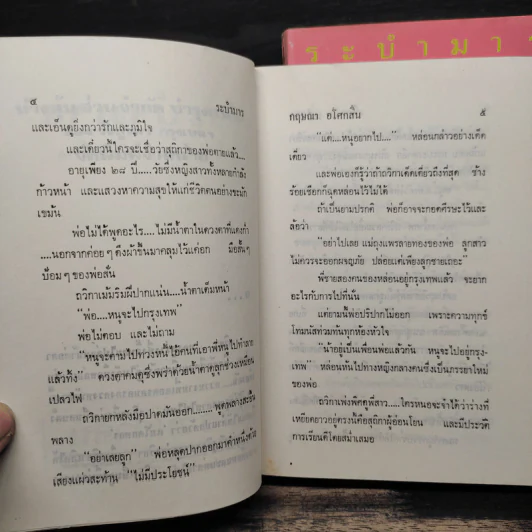 ระบำมาร
๔ ระบำมาร
และเอ็นดูยิ่งกว่ารักและภูมิใจ
และเดี๋ยวนี้ใครจะเชื่อว่าสุถิกาของพ่อตายแล้ว....
อายุเพียง ๒๘ ปี.....วัยซึ่งหญิงสาวทั้งหลายกำลัง
ก้าวหน้า และแสวงหาความสุขให้แก่ชีวิตตนอย่างชะมัก
เขม้น
พ่อไม่ได้พูดอะไร....ไม่มีน้ำตาในดวงตาที่แดงก่ำ
....นอกจากค่อย ๆ ดึงผ้าขึ้นมาคลุมไว้แค่อก มือสั้น ๆ
ป้อม ๆ ของพ่อสั่น
ถวิกาเม้มริมฝีปากแน่น....น้ำตาเต็มหน้า
"พ่อ....หนูจะไปกรุงเทพ"
พ่อไม่ตอบ และไม่ถาม
"หนูจะตามไปทวงหนี้ไอ้คนที่เอาพี่หนูไปทำลาย
แล้วทิ้ง" ดวงตาคมดุซึ่งพร่าด้วยน้ำตาลุกช่วงเหมือน
เปลวไฟ
ถวิกายกหลังมือปาดมันออก....... พูดพลางสะอื้น
พลาง
"อย่าเลยลูก" พ่อหลุดปากออกมาคำหนึ่งด้วย
เสียงแผ่วสะท้าน "ไม่มีประโยชน์"
กฤษณา อโศกสิน ๕
"แต่....หนูอยากไป....." หล่อนกล่าวอย่างเด็ด
เดี่ยว
และพ่อเองก็รู้ว่าถ้าถวิกาเด็ดเดี่ยวถึงที่สุด ช้าง
ร้อยเชือกก็ฉุดหล่อนไว้ไม่ได้
ถ้าเป็นยามปรกติ พ่อก็อาจจะกอดศีรษะไว้และ
ล้อว่า
"อย่าไปเลย แม่ถุงแพรลายทองของพ่อ ลูกสาว
ไม่ควรจะออกผจญภัย ปล่อยแต่เพียงลูกชายเถอะ"
พี่ชายสองคนของหล่อนอยู่กรุงเทพแล้ว จะยาก
อะไรกับการไปที่นั่น
แต่ยามนี้พ่อปริปากไม่ออก เพราะความทุกข์
โทมนัสท่วมทันทุกห้องหัวใจ
"น้าอยู่เป็นเพื่อนพ่อแล้วกัน หนูจะไปอยู่กรุง-
เทพ" หล่อนหันไปทางหญิงกลางคนซึ่งเป็นภรรยาใหม่
ของพ่อ
ถวิกาเพ่งพิศดูพี่สาว.....ใครหนอจะจำได้ว่าร่างที่
เหยียดยาวอยู่ตรงนี้คือสุถิกาผู้อ่อนโยน และมีประวัติ
การเรียนดีโดยสม่ำเสมอ